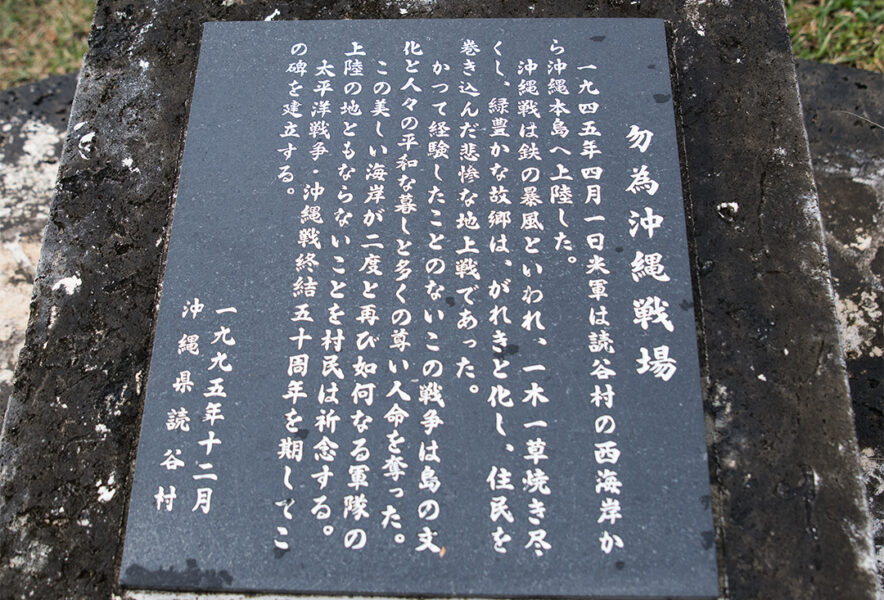 勿為沖縄戦場
一九四五年四月一日米軍は読谷村の西海岸か
ら沖縄本島へ上陸した。
沖縄戦は鉄の暴風といわれ、一木一草焼き尽
くし、緑豊かな故郷は、がれきと化し、住民を
巻き込んだ悲惨な地上戦であった。
かつて経験したことのないこの戦争は島の文
化と人々の平和な暮しと多くの尊い人命を奪った。
この美しい海岸が二度と再び如何なる軍隊の
上陸の地ともならないことを村民は祈念する。
太平洋戦争・沖縄戦終結五十周年を期してこ
の碑を建立する。
一九九五年十二月
沖縄県読谷村